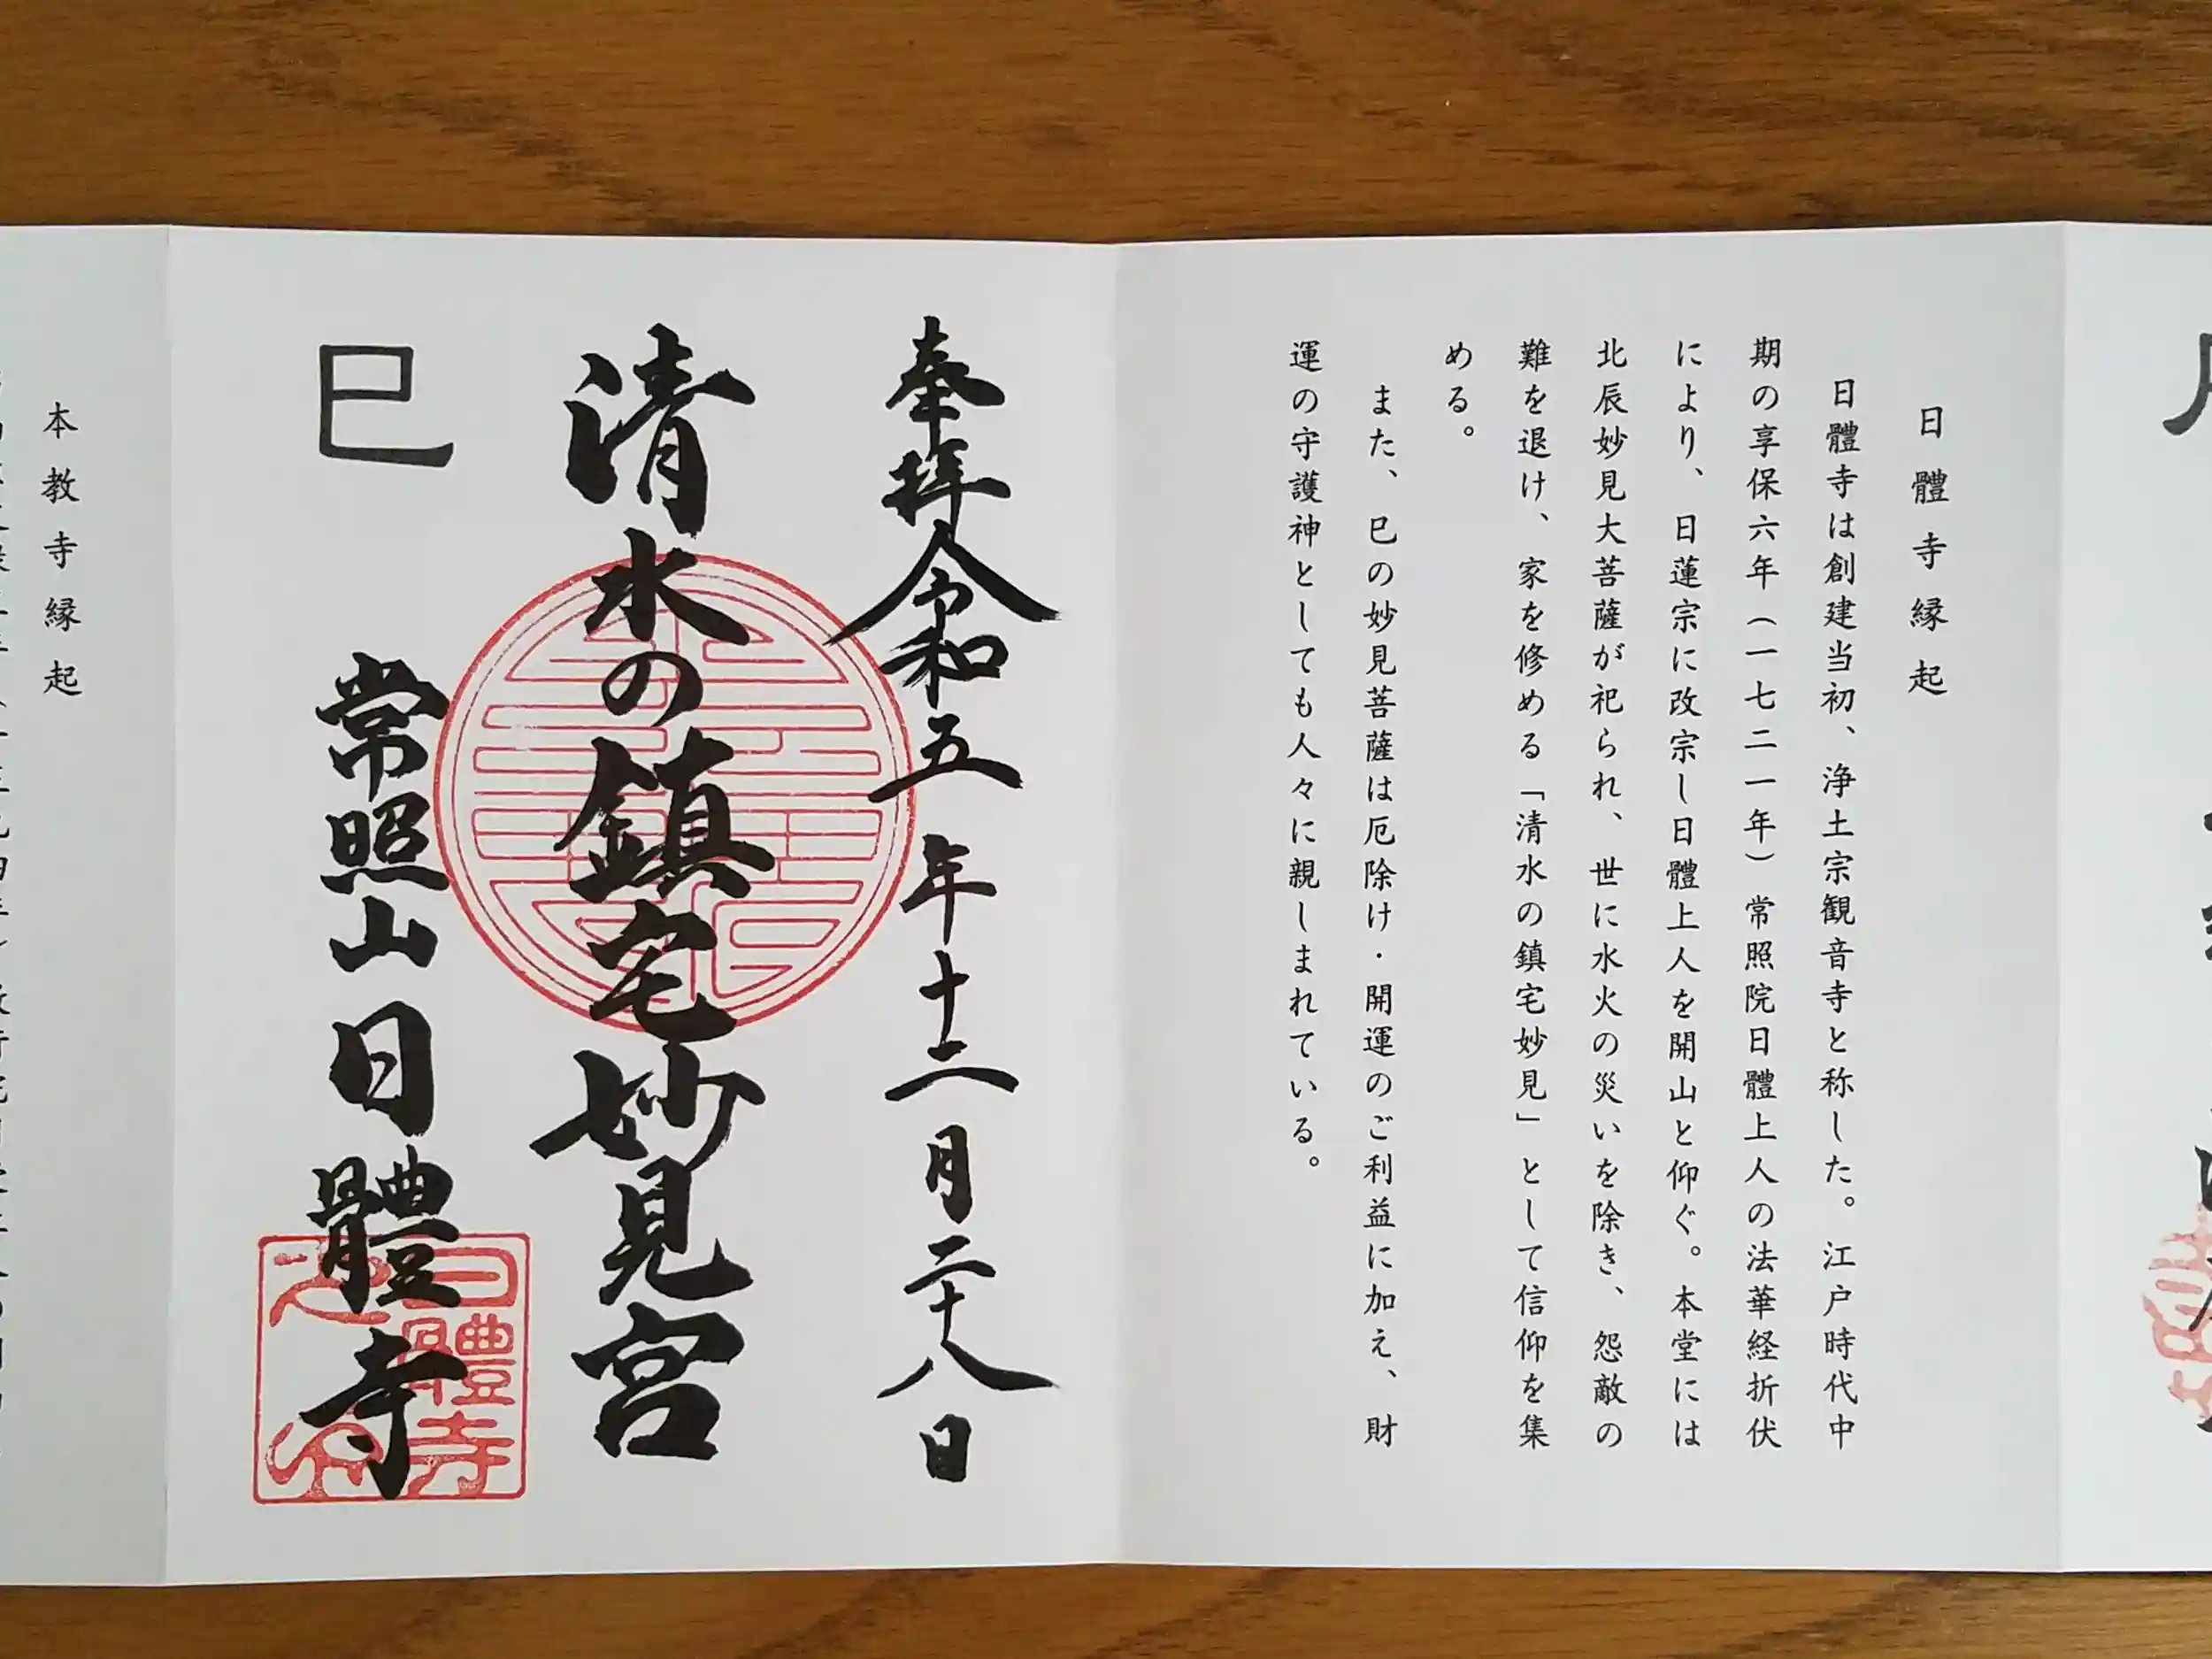 日體寺縁起
日體寺は創建当初、浄土宗観音寺と称した。江戸時代中
期の享保六年（一七二一年）常照院日體上人の法華経折伏
により、日蓮宗に改宗し日體上人を開山と仰ぐ。本堂には
北辰妙見大菩薩が祀られ、世に水火の災いを除き、怨敵の
難を退け、家を修める「清水の鎮宅妙見」として信仰を集
める。
また、巳の妙見菩薩は厄除け・開運のご利益に加え、財
運の守護神としても人々に親しまれている。
奉拝令和五年十二月二十八日
清水の鎮宅妙見宮
巳
常照山日體寺
日體寺
本教寺縁起